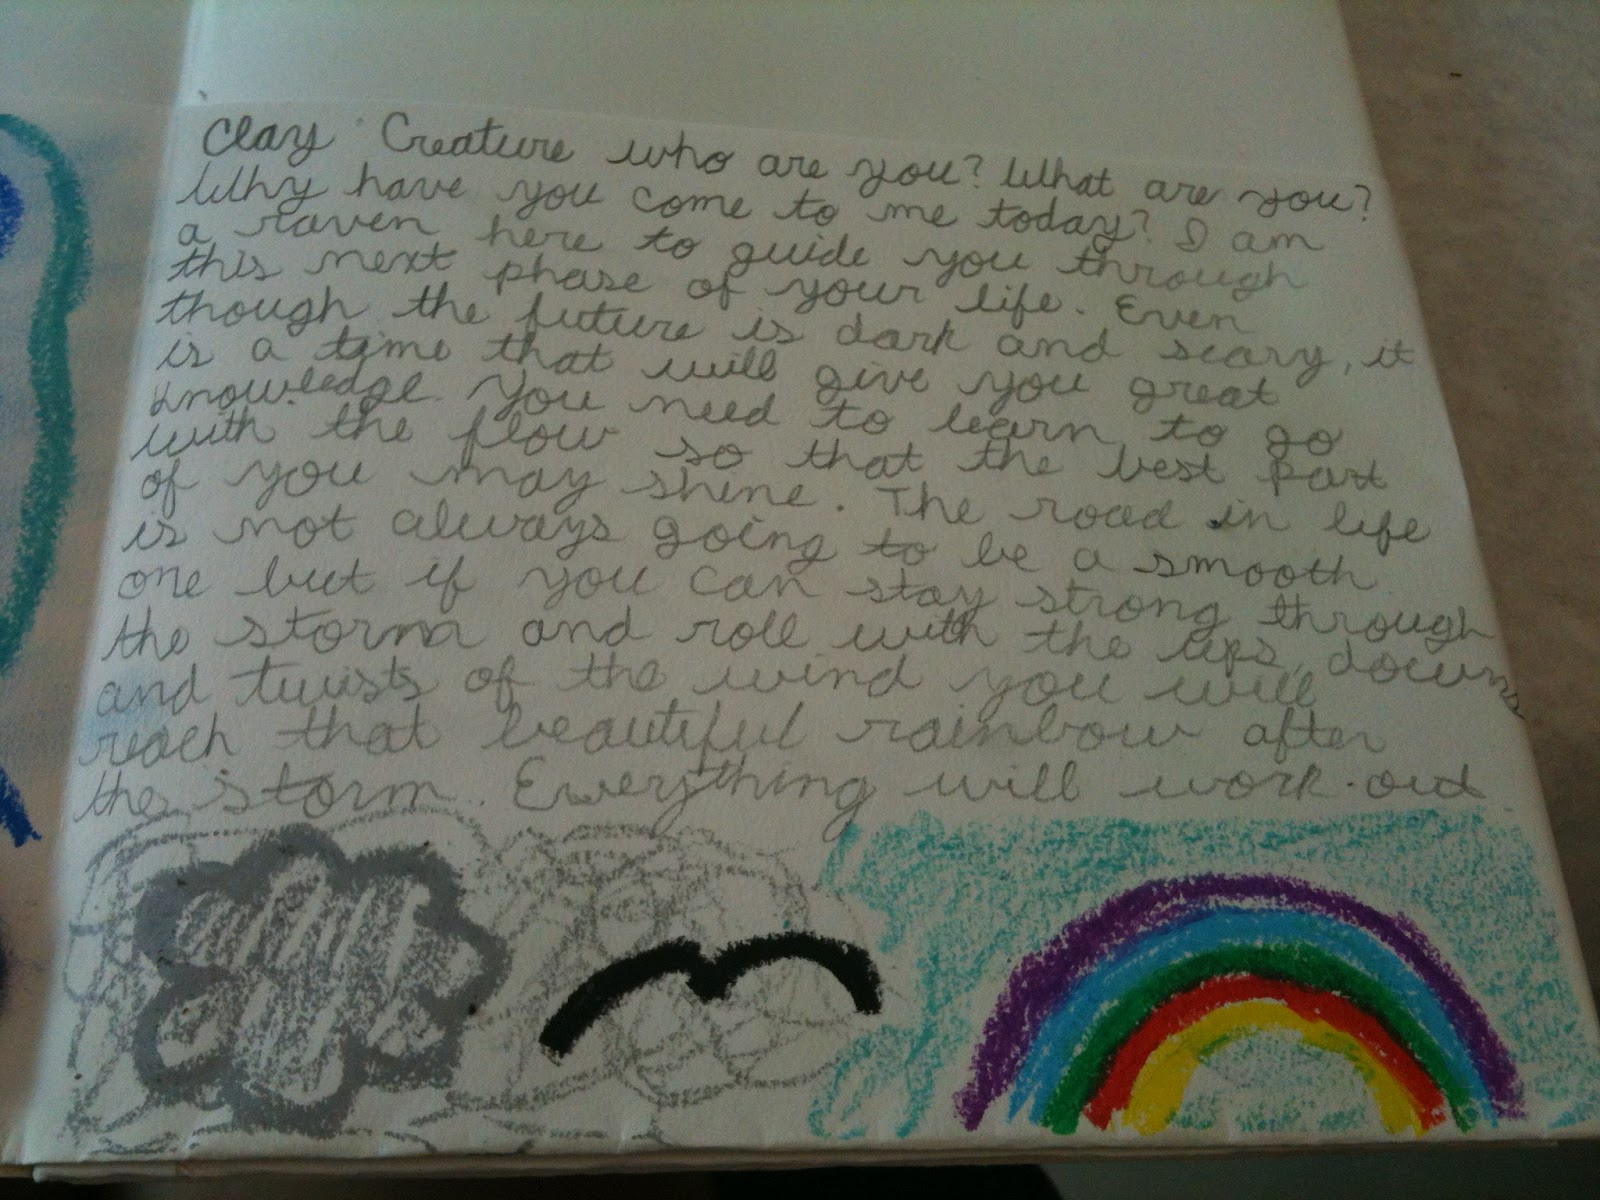 Clay Creature who are you? What are you?
Why have you come to me today? I am
a raven here to guide you through
this next phase of your life. Even
though the future is dark and scary, it
is a time that will give you great
knowledge. You need to learn to go
with the flow so that the best part
of you may shine. The road in life
is not always going to be a smooth
one but if you can stay strong through
the storm and roll with the ups, downs
and twists of the wind you will
reach that beautiful rainbow after
the storm. Everything will work out